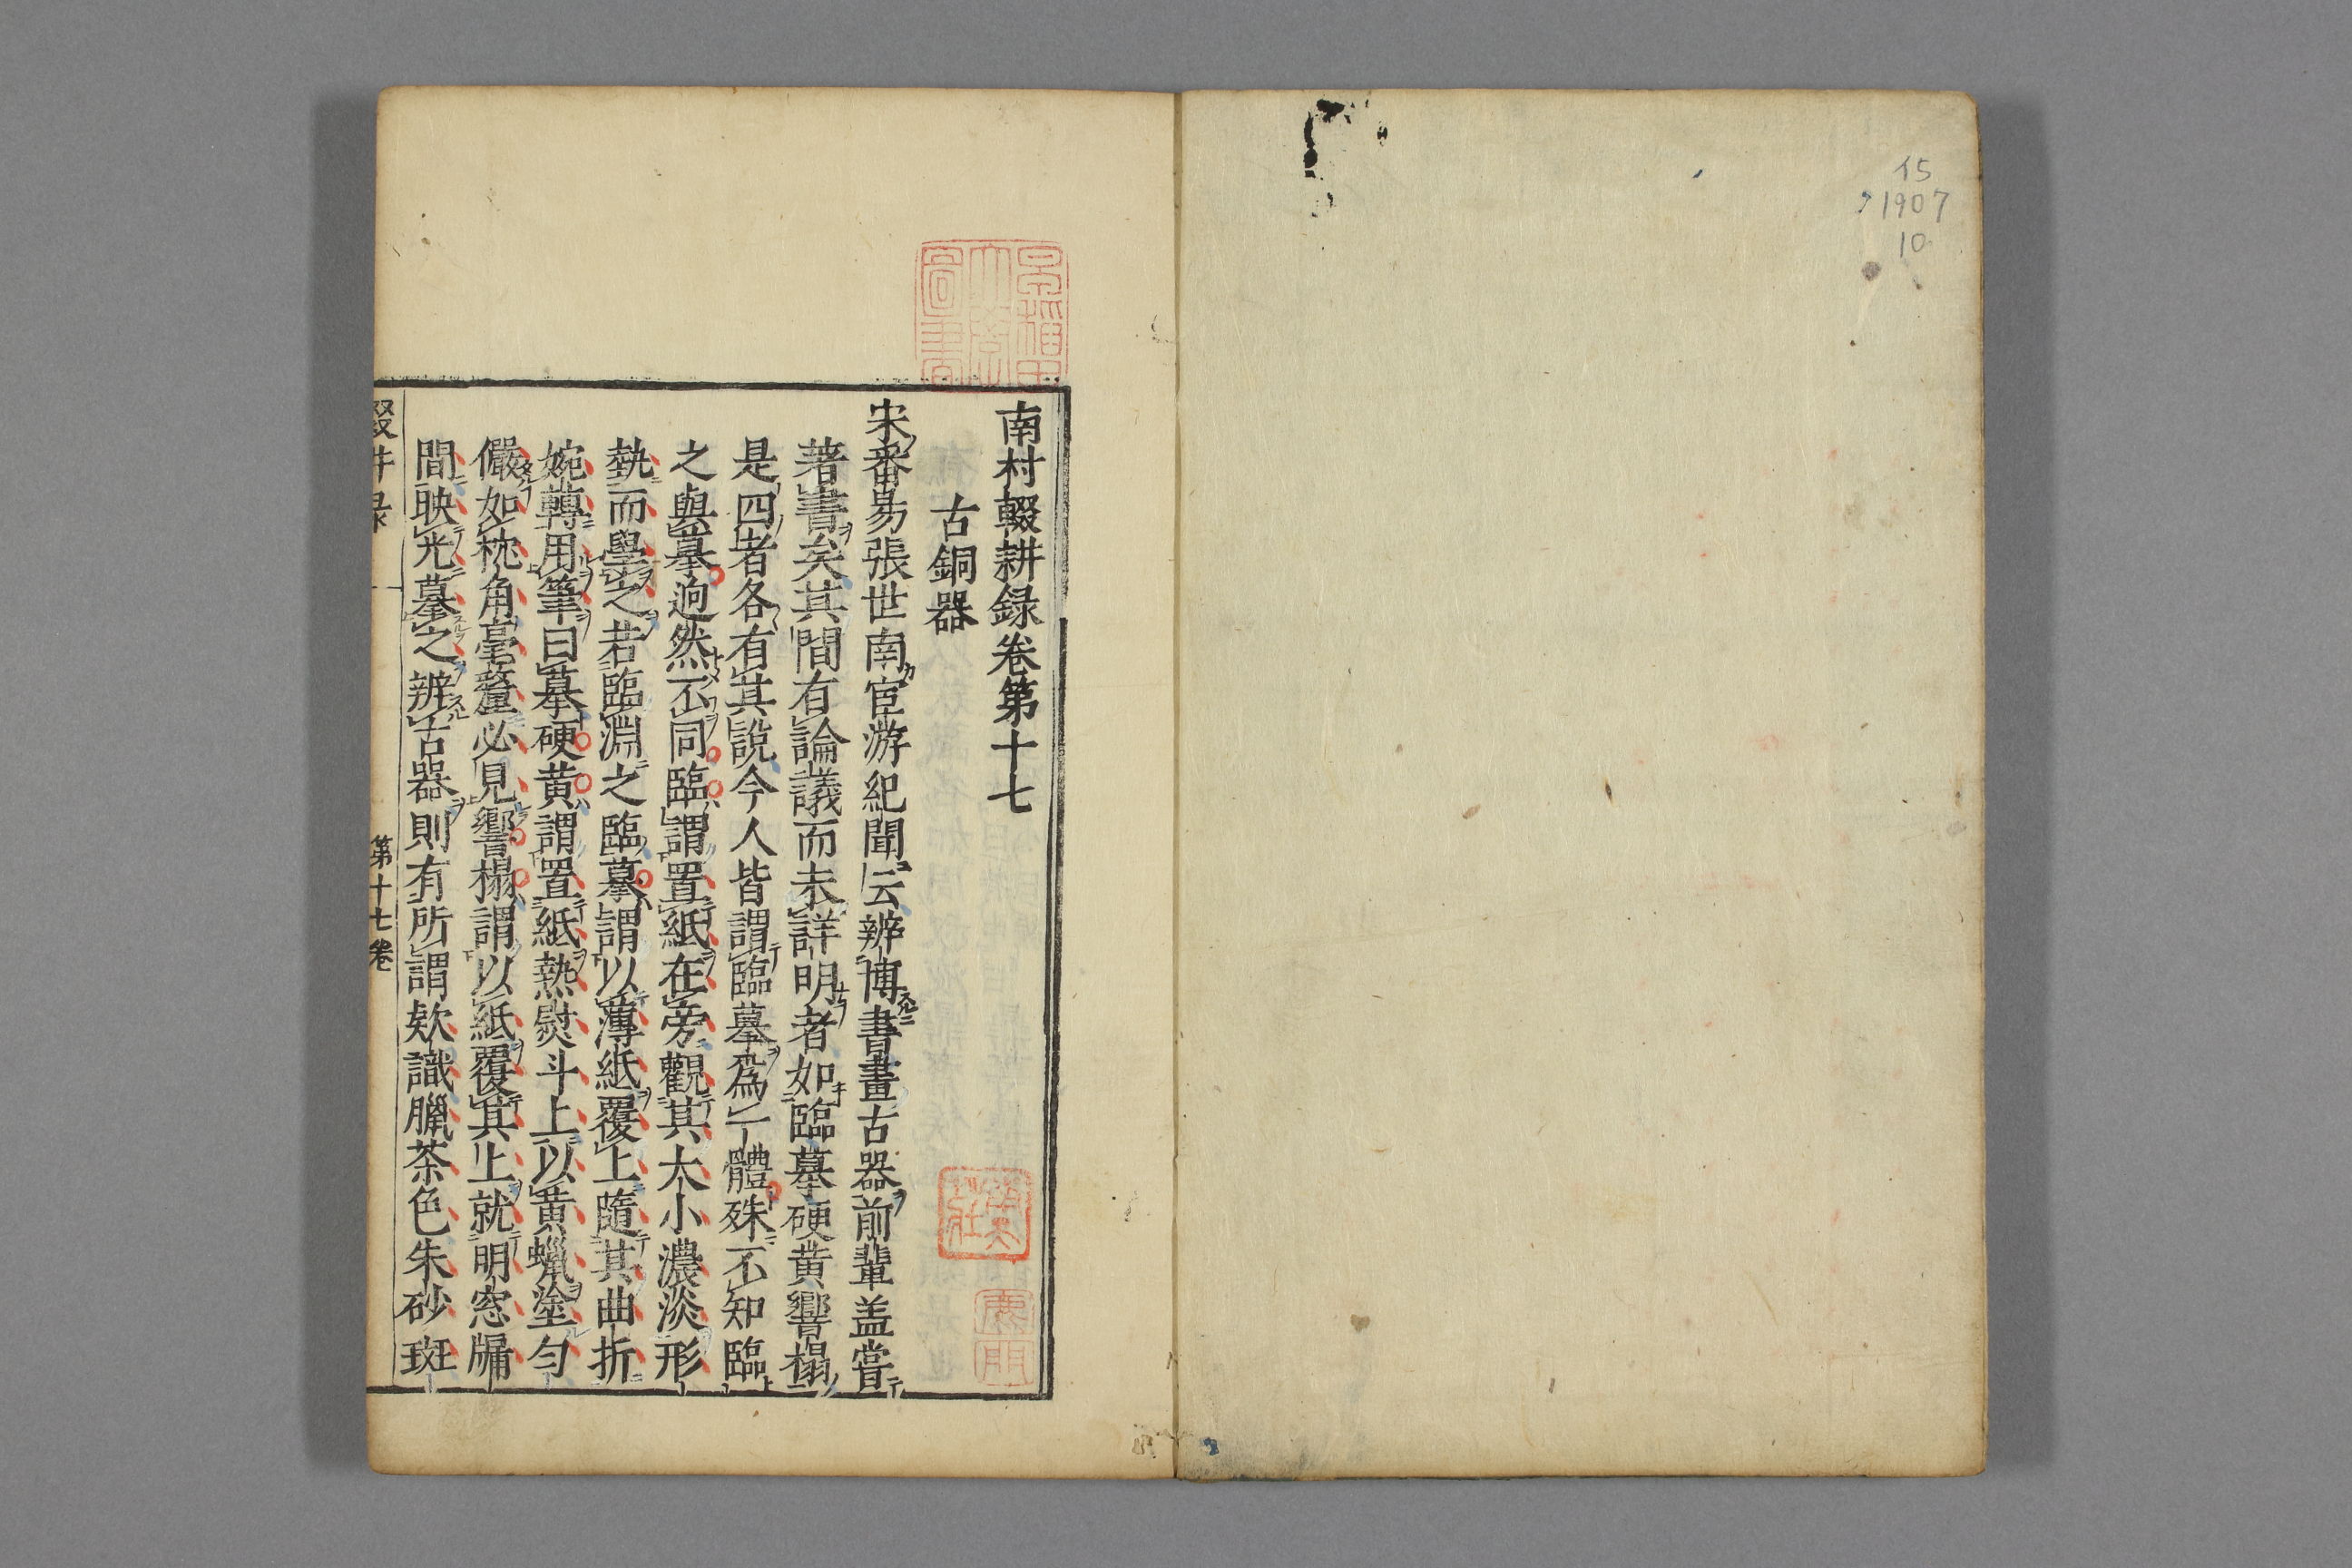 15
1907
10
早稲田
大学
圖書
南村輟耕録卷第十七
古銅器
宋番昜張世南宦游紀聞云辨博書畫古器前輩盖嘗
著書矣其間有論議而未詳明者如臨摹硬黄響榻
是四者各有其說今人皆謂臨摹爲一體殊不知臨
之與摹逈然不同臨謂置紙在旁觀其大小濃淡形
埶而學之若臨淵之臨摹謂以薄紙覆上隨其曲折
婉轉用筆曰摹硬黄謂置紙熱熨斗上以黄蠟塗勻
儼如枕角毫釐必見響榻謂以紙覆其上就明窓牖
間映光摹之辨古器則有所謂欵識臘茶色朱砂斑
第十七卷